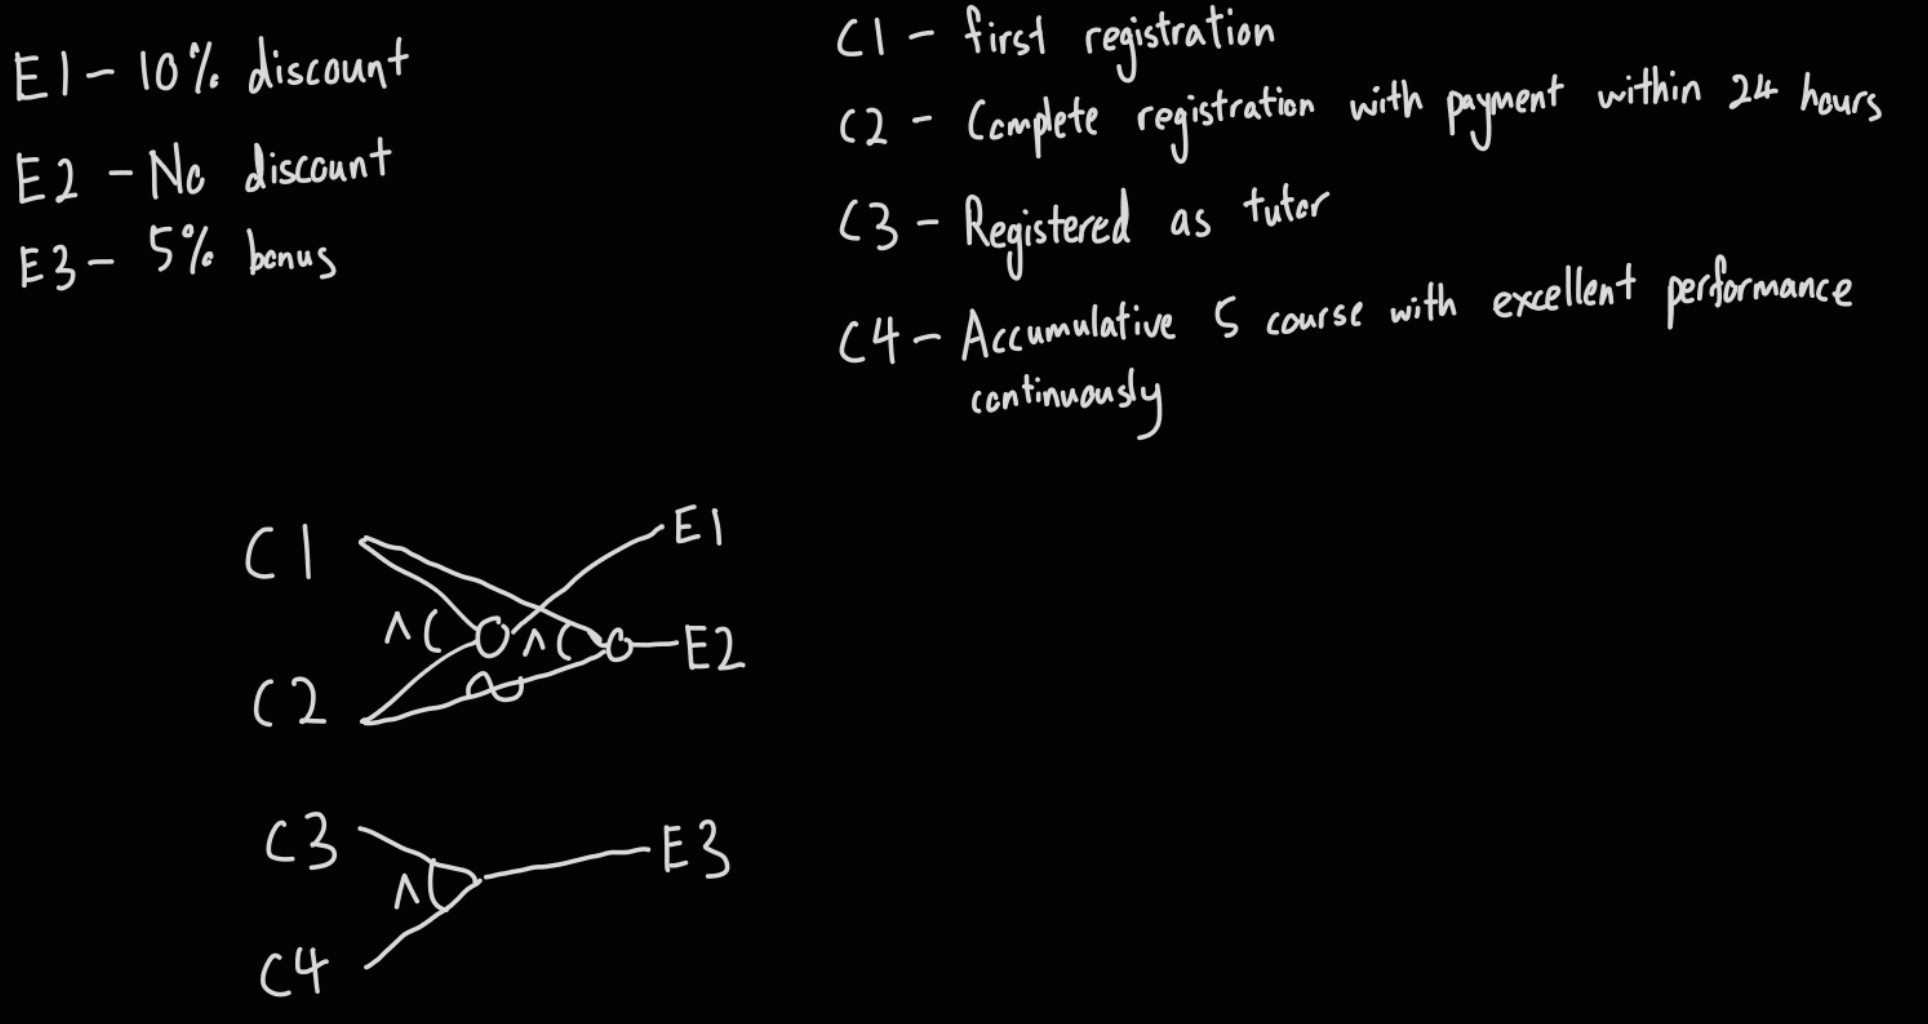 E1 - 10% discount
E2 - No discount
E3 - 5% bonus
C1 - first registration
C2 - Complete registration with payment within 24 hours
C3 - Registered as tutor
C4 - Accumulative 5 course with excellent performance
continuously
C1
E1
^
^
E2
C2
~
C3
E3
^
C4